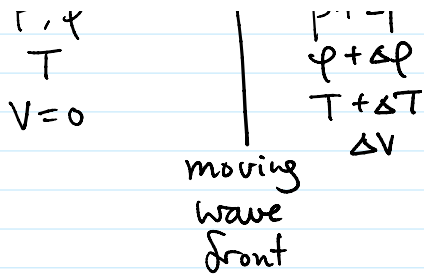 T
V = 0
φ + Δφ
T + ΔT
ΔV
moving
wave
front